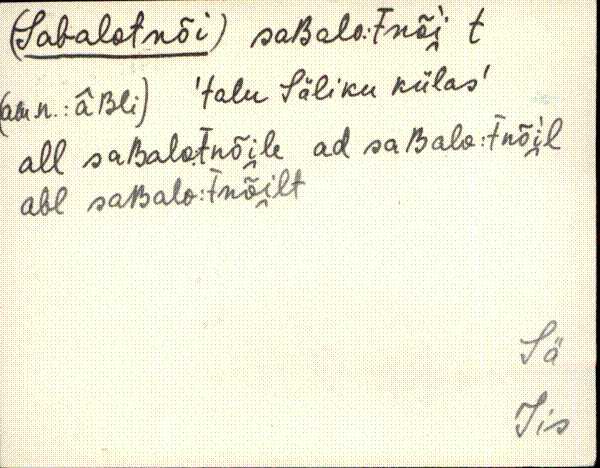 (Sabalotnõi) saBalo:Tnõi̯ t
(am.n.: âBli) 'talu Säliku külas'
all saBalo:Tnõi̯le ad saBalo:Tnõi̯l
abl saBalo:Tnõi̯lt
Sä
Jis